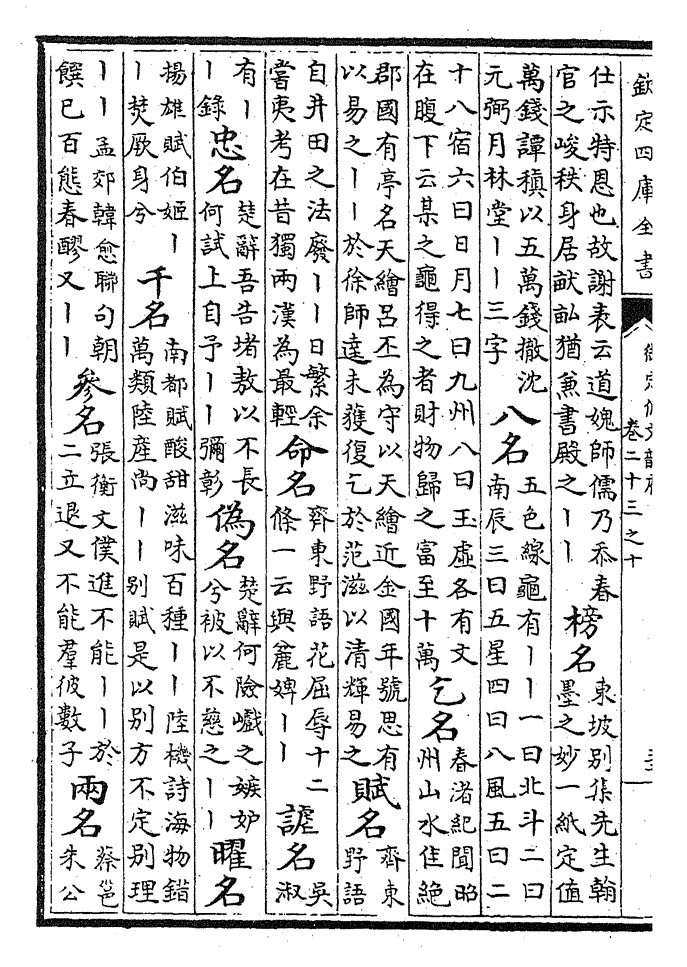 欽定四庫全書
御定佩文韻府
卷二十三之十
仕示特恩也故謝表云道媿師儒乃忝春
官之峻秩身居畎畝猶兼書殿之丨丨
榜名
東坡別集先生翰
墨之妙一紙定值
萬錢譚稹以五萬錢撤沈
元弼月林堂丨丨三字
八名
五色線龜有丨丨一曰北斗二曰
南辰三曰五星四曰八風五曰二
十八宿六曰日月七曰九州八曰玉虛各有文
在腹下云某之龜得之者財物歸之富至十萬
乞名
春渚紀聞昭
州山水佳絶
郡國有亭名天繪呂丕為守以天繪近金國年號思有
以易之丨丨於徐師達未獲復乞於范滋以清輝易之
賦名
齊東
野語
自井田之法廢丨丨日繁余
嘗夷考在昔獨兩漢為最輕
命名
齊東野語花屈辱十二
條一云與麄婢丨丨
謔名
吳
淑
有丨
丨錄
忠名
楚辭吾告堵敖以不長
何試上自予丨丨彌彰
偽名
楚辭何險巇之嫉妒
兮被以不慈之丨丨
曜名
揚雄賦伯姬丨
丨焚厥身兮
千名
南都賦酸甜滋味百種丨丨陸機詩海物錯
萬類陸産尚丨丨別賦是以別方不定別理
丨丨孟郊韓愈聯句朝
饌已百態春醪又丨丨
參名
張衡文僕進不能丨丨於
二立退又不能羣彼數子
兩名
蔡邕
朱公